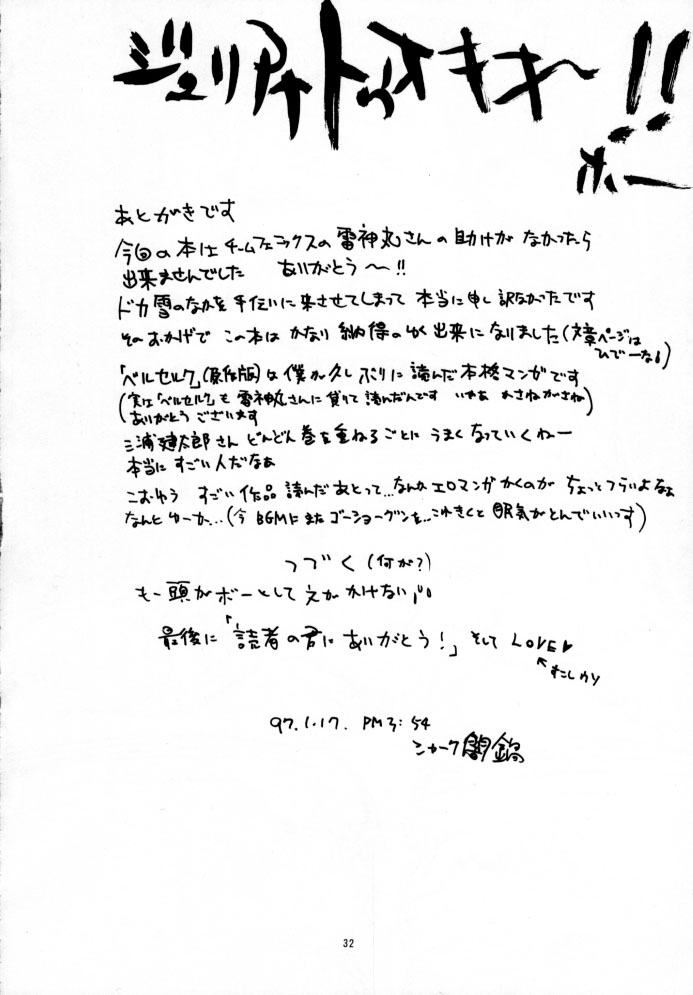 ジュリアナトゥオキキ〜!!
ホー
あとがきです
今回の本はチームフェニックスの雷神丸さんの助けがなかったら
出来ませんでした ありがとう〜!!
ドカ雪のなかを手伝いに来させてしまって 本当に申し訳なかったです
そのおかげで この本は かなり 納得のゆく出来になりました(文章ページは
ひでーなぁ)
「ベルセルク」(原作版)は僕が久しぶりに読んだ本格マンガです
(実は「ベルセルク」も 雷神丸さんに貸りて読んだんです いやぁ かさねがさね)
(ありがとう ございます
三浦建太郎さん どんどん巻を重ねるごとに うまくなっていくねー
本当に すごい人だなぁ
こおゆう すごい作品 読んだあとって...なんか エロマンガ かくのが ちょっとつらいよなぁ
なんとゆーか...(今 BGMに またゴーショーグンを...これきくと 眠気がとんでいいっす)
つづく (何が?)
もー頭がボーとして えが かけない
最後に「読者の君にありがとう!」 そして LOVE♥
97.1.17. PM3:54
シャーク闇鍋
32